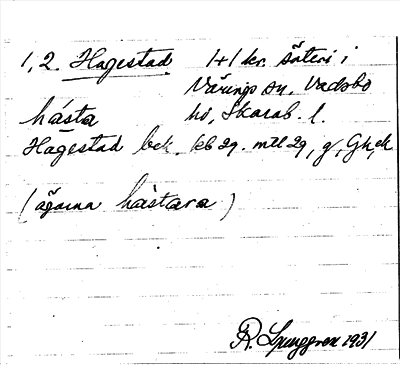 1, 2. Hagestad 1+1 kr. säteri i
Värings sn. Vadsbo
hästa hd, Skarab. l.
Hagestad bek. kb 29. mtl 29, g, Gk, ek
(ägarna hästara)
R. Ljunggren 1931